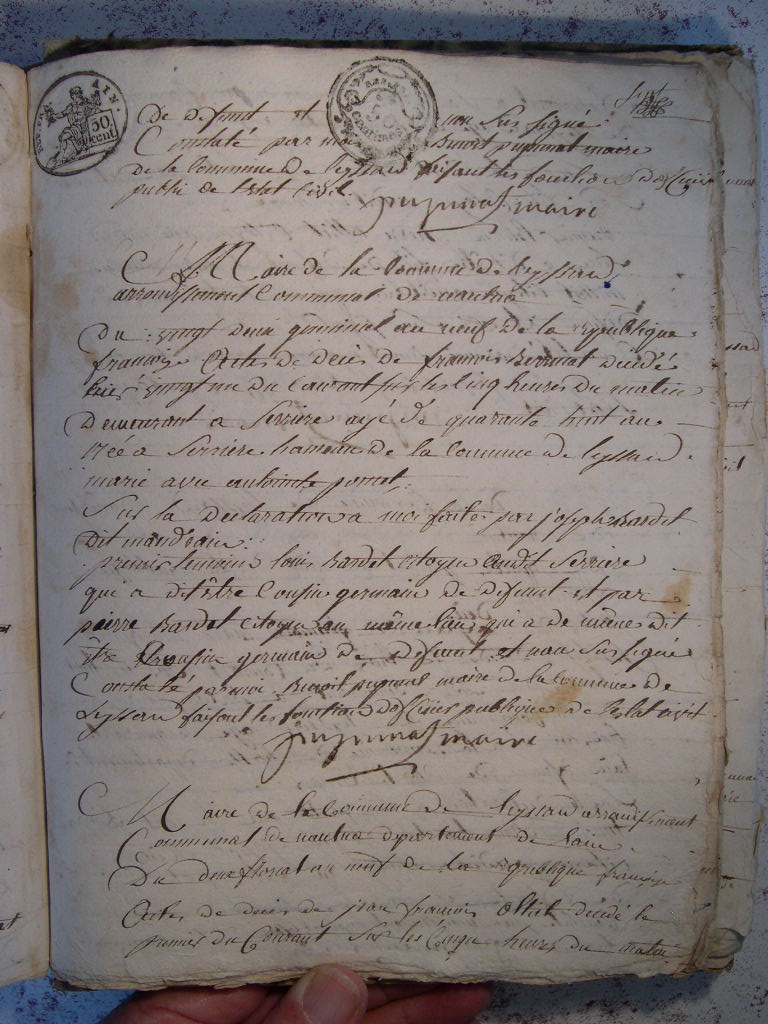 AIN.
50
cent
Sept
De defunt et non sur signé
Constaté par moi Benoit pugunat maire
de la Commune De Leyssard faisant les fonctions D'officiér
public de L'état Civil.
maire
Mairie de la Commune De Leyssard
arrondissement Communal De nantua
Du vingt deux germinal an neuf de la republique
francoise Actes De deces de francois decedé
hier vingt un Du Courant sur les Cinq heures Du matin
Demeurant a Serriere agé de quarante huit an
née a Serriere hameau De la Commune de leyssard
marie avec
Sur la Declaration a moi faites par joseph Bardet
Dit
premié temoin louis Bardet Citoyen audit Serriere
qui a dit être Cousin germain de defunt et par
pierre Bardet Citoyen au même lieu qui a de même dit
être Cousin germain de Defunt et non sur signé
Constaté par moi Benoit pugunat maire de la Commune De
Leyssard faisant les fonction d'officiés publique De L'état civil
maire
Mairie De la Commune De leyssard arrondissement
Communal De nantua Departement De Lain
Du Deux floreal an neuf De La republique francoise
Actes De deces De jean francois decedé le
premiés Du Courant sur les Cinque heures Du matin